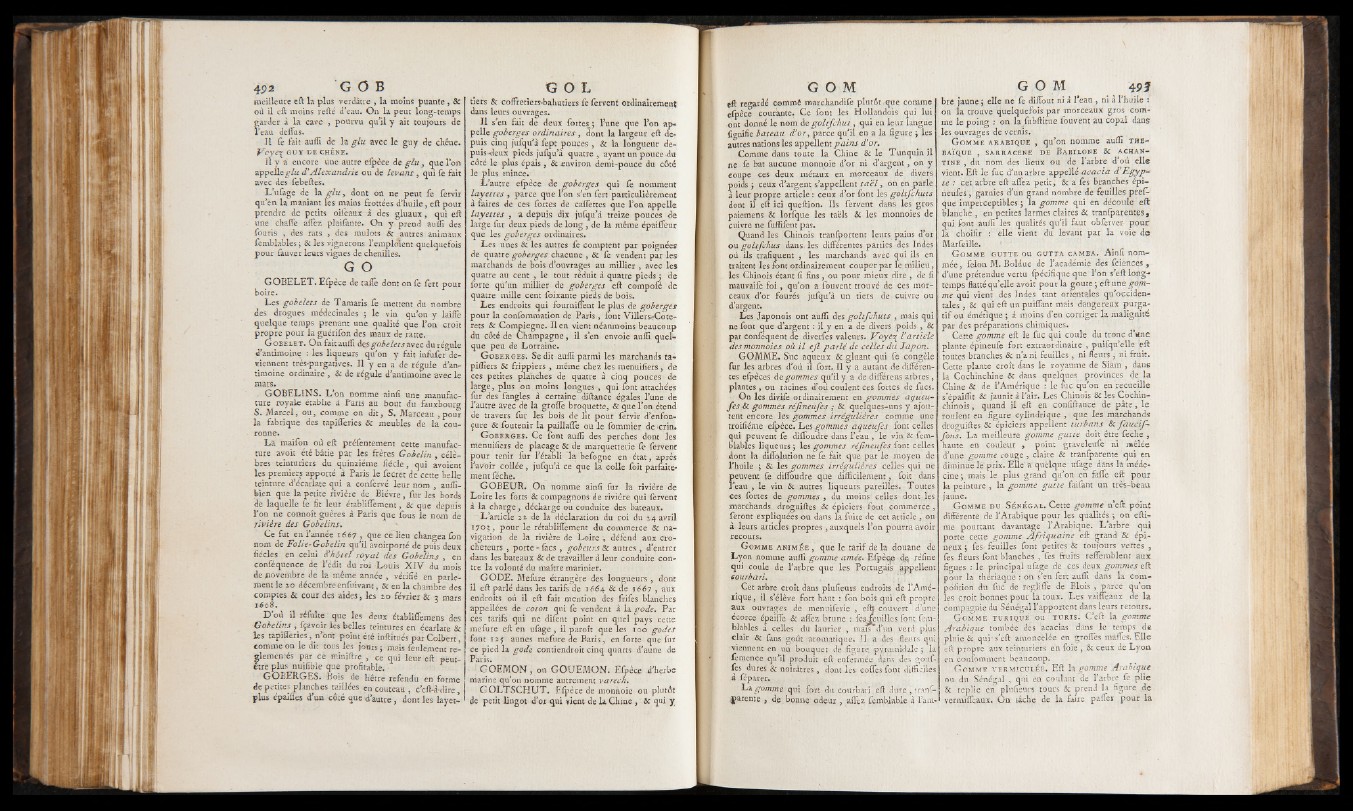 492 GOB
meilleure est la plus verdâtre, la moins puante, &
où il est moins resté d'eau. On la peut long-temps
garder à la cave, pourvu qu'il y ait toujours de
l'eau dessus.
Il se fait aussi de la glu avec le guy de chêne.
Voyez GUY DE CHÊNE.
Il y a encore une autre espéce de glu, que l'on
appelle glu d'Alexandrie ou de levant, qui se fait
avec des sebestes.
L'usage de la glu, dont on ne peut se servir
qu'en la maniant les mains frottées d'huile, est pour
prendre de petits oiseaux à des gluaux, qui est
une chasse assez plaisante. On y prend aussi des
souris, des rats, des mulots & autres animaux
semblables; & les vignerons l'emploient quelquefois
pour sauver leurs vignes de chenilles.
GO
GOBELET. Espéce de tasse dont on se sert pour
boire.
Les gobelets de Tamaris se mettent du nombre
des drogues médecinales; le vin qu'on y laisse
quelque temps prenant une qualité que l'on croit
propre pour la guérison des maux de ratte.
GOBELET. On fait aussi des gobelets avec du régule
d'antimoine: les liqueurs qu'on y fait infuser de-
viennent très-purgatives. Il y en a de régule d'an-
timoine ordinaire, & de régule d'antimoine avec le
mars.
GOBELINS. L'on nomme ainsi une manufac-
ture royale établie à Paris au bout du fauxbourg
S. Marcel, ou, comme on dit, S. Marceau, pour
la fabrique des tapisseries & meubles de la cou-
ronne.
La maison où est présentement cette manufac-
ture avoit été bâtie par les frères Gobelin, célè-
bres teinturiers du quinziéme siécle, qui avoient
les premiers apporté à Paris le secret de cette belle
teinture d'écarlate qui a conservé leur nom, aussi-
bien que la petite riviére de Biévre, sur les bords
de laquelle se fit leur établissement, & que depuis
l'on ne connoît guères à Paris que sous le nom de
riviére des Gobelins.
Ce fut en l'année 1667, que ce lieu changea son
nom de Folie-Gobelin qu'il avoit porté de puis deux
siécles en celui d'hôtel royal des Gobelins, en
conséquence de l'edit du roi Louis XIV du mois
de novembre de la même année, vérifié en parle-
ment le 20 décembre ensuivant, & en la chambre des
comptes & cour des aides, les 20 février & 3 mars
1608.
D'où il résulte que les deux établissemens des
Gobelins, sçavoir les belles teintures en écarlate &
les tapisseries, n'ont point été institués par Colbert,
comme on le dit tous les jours; mais seulement re-
glementés par ce ministre, ce qui leur est peut-
être plus nuisible que profitable.
GOBERGES. Bois de hêtre refendu en forme
de petites planches taillées en couteau, c'est-à-dire,
plus épaisses d'un côté que d'autre, dont les layet-
GOL
tiers & coffretiers-bahutiers se servent ordinairement
dans leurs ouvrages.
Il s'en fait de deux sortes; l'une que l'on ap-
pelle goberges ordinaires, dont la largeur est de-
puis cinq jusqu'à sept pouces, & la longueur de-
puis deux pieds jusqu'à quatre, ayant un pouce du
côté le plus épais, & environ demi-pouce du côté
le plus mince.
L'autre espéce de goberges qui se nomment
layettes, parce que l'on s'en sert particuliérement
à faires de ces sortes de cassettes que l'on appelle
layettes, a depuis dix jusqu'à treize pouces de
large sur deux pieds de long, de la même épaisseur
que les goberges ordinaires.
Les unes & les autres se comptent par poignées
de quatre goberges chacune, & se vendent par les
marchands de bois d'ouvrages au millier, avec les
quatre au cent, le tout réduit à quatre pieds; de
sorte qu'un millier de goberges est composé de
quatre mille cent soixante pieds de bois.
Les endroits qui fournissent le plus de goberges
pour la consommation de Paris, sont Villers-Cote-
rets & Compiegne. Il en vient néanmoins beaucoup
du côté de Champagne, il s'en envoie aussi quel-
que peu de Lorraine.
GOBERGES. Se dit aussi parmi les marchands ta-
pissiers & frippiers, même chez les menuisiers, de
ces petites planches de quatre à cinq pouces de
large, plus ou moins longues, qui sont attachées
sur des sangles à certaine distance égales l'une de
l'autre avec de la grosse broquette, & que l'on étend
de travers sur les bois de lit pour servir d'enfon-
çure & soutenir la paillasse ou le sommier de crin.
GOBERGES. Ce sont aussi des perches dont les
menuisiers de placage & de marquetterie se servent
pour tenir sur l'établi la besogne en état, après
l'avoir collée, jusqu'à ce que la colle soit parfaite-
ment séche.
GOBEUR. On nomme ainsi sur la riviére de
Loire les forts & compagnons de riviére qui servent
à la charge, décharge ou conduite des bateaux.
L'article 22 de la déclaration du roi du 24 avril
1703, pour le rétablissement du commerce & na-
vigation de la riviére de Loire, défend aux cro-
cheteurs, porte-faes, gobeurs & autres, d'entrer
dans les bateaux & de travailler à leur conduite con-
tre la volonté du maître marinier.
GODE. Mesure étrangère des longueurs, dont
il est parlé dans les tarifs de 1664 & de 1667, aux
endroits où il est fait mention des frises blanches
appellées de coton qui se vendent à la gode. Par
ces tarifs qui ne disent point en quel pays cette
mesure est en usage, il paroît que les 100 godes
font 125 aunes mesure de Paris, en sorte que sur
ce pied la gode contiendroit cinq quarts d'aune de
Paris.
GOEMON, on GOUEMON. Espéce d'herbe
marine qu'on nomme autrement varech.
GOLTSCHUT. Espéce de monnoie ou plutôt
de petit lingot d'or qui vient de la Chine, & qui y
GOM
est regardé comme marchandise plutôt que comme
espéce courante. Ce sont les Hollandois qui lui
ont donné le nom de goltschut, qui en leur langue
signifie bateau d'or, parce qu'il en a la figure; les
autres nations les appellent pains d'or.
Comme dans toute la Chine & le Tunquin il
ne se bat aucune monnoie d'or ni d'argent, on y
coupe ces deux métaux en morceaux de divers
poids; ceux d'argent s'appellent taël, on en parle
à leur propre article: ceux d'or sont les goltschuts
dont il est ici question. Ils servent dans les gros
paiemens & lorsque les taëls & les monnoies de
cuivre ne suffisent pas.
Quand les Chinois transportent leurs pains d'or
ou goltschut dans les différentes parties des Indes
où ils trafiquent, les marchands avec qui ils en
traitent les font ordinairement couper par le milieu,
les Chinois étant si fins, ou pour mieux dire, de si
mauvaise foi, qu'on a souvent trouvé de ces mor-
ceaux d'or fourés jusqu'à un tiers de cuivre ou
d'argent.
Les Japonois ont aussi des goltschuts, mais qui
ne sont que d'argent: il y en a de divers poids, &
par conséquent de diverses valeurs. Voyez l'article
des monnoies où il est parlé de celles du Japon.
GOMME. Suc aqueux & gluant qui se congèle
sur les arbres d'où il sort. Il y a autant de différen-
tes espéces de gommes qu'il y a de différens arbres,
plantes, ou racines d'où coulent ces sortes de sucs.
On les divise ordinairement en gommes aqueu-
ses & gommes résineuses; & quelques-uns y ajou-
tent encore les gommes irréguliéres comme une
troisiéme espéce. Les gommes aqueuses sont celles
qui peuvent se dissoudre dans l'eau, le vin & sem-
blables liqueurs; les gommes résineuses sont celles
dont la dissolution ne se fait que par le moyen de
l'huile; & les gommes irréguliéres celles qui ne
peuvent se dissoudre que difficilement, soit dans
l'eau, le vin & autres liqueurs pareilles. Toutes
ces sortes de gommes, du moins celles dont les
marchands droguistes & épiciers font commerce,
seront expliquées ou dans la suite de cet article, ou
à leurs articles propres, auxquels l'on pourra avoir
recours.
GOMME ANIMÉE, que le tarif de la douane de
Lyon nomme aussi gomme amée. Espéce de résine
qui coule de l'arbre que les Portugais appellent
courbari.
Cet arbre croît dans plusieurs endroits de l'Amé-
rique, il s'éléve fort haut: son bois qui est propre
aux ouvrages de menuiserie, est couvert d'une
écorce épaisse & assez brune: ses feuilles sont sem-
blables à celles du laurier, mais d'un verd plus
clair & sans goût aromatique. Il a des fleurs qui
viennent en un bouquet de figure pyramidale; la
semence qu'il produit est enfermée dans des gous-
ses dures & noirâtres, dont les cosses sont difficiles
à séparer.
La gomme qui sort du courbari est dure, trans-
parente, de bonne odeur, assez semblable à l'am-
GOM 493
bre jaune; elle ne se dissout ni à l'eau, ni à l'huile:
on la trouve quelquefois par morceaux gros com-
me le poing: on la substitue souvent au copal dans
les ouvrages de vernis.
GOMME ARABIQUE, qu'on nomme aussi THE-
BAÏQUE, SARRACENE DE BABILONE & ACHAN-
TINE, du nom des lieux ou de l'arbre d'où elle
vient. Est le suc d'un arbre appellé acacia d'Egyp-
te: cet arbre est assez petit, & a ses branches épi-
neuses, garnies d'un grand nombre de feuilles pres-
que imperceptibles; la gomme qui en découle est
blanche, en petites larmes claires & transparentes,
qui sont aussi les qualités qu'il faut observer pour
la choisir: elle vient du levant par la voie de
Marseille.
GOMME GUTTE ou GUTTA CAMBA. Ainsi nom-
mée, selon M. Bolduc de l'académie des sciences,
d'une prétendue vertu spécifique que l'on s'est long-
temps flatté qu'elle avoit pour la goute; est une gom-
me qui vient des Indes tant orientales qu'occiden-
tales, & qui est un puissant mais dangereux purga-
tif ou émétique; à moins d'en corriger la malignité
par des préparations chimiques.
Cette gomme est le suc qui coule du tronc d'une
plante épineuse fort extraordinaire, puisqu'elle est
toutes branches & n'a ni feuilles, ni fleurs, ni fruit.
Cette plante croît dans le royaume de Siam, dans
la Cochinchine & dans quelques provinces de la
Chine & de l'Amérique: le suc qu'on en recueille
s'épaissit & jaunit à l'air. Les Chinois & les Cochin-
chinois, quand il est en consistance de pâte, le
roulent en figure cylindrique, que les marchands
droguistes & épiciers appellent turbans & saucis-
sons. La meilleure gomme gutte doit être séche,
haute en couleur, point graveleuse ni mêlée
d'une gomme rouge, claire & transparente qui en
diminue le prix. Elle a quelque usage dans la méde-
cine; mais le plus grand qu'on en fasse est pour
la peinture, la gomme gutte faisant un très-beau
jaune.
GOMME DU SÉNÉGAL. Cette gomme n'est point
différente de l'Arabique pour les qualités; on esti-
me pourtant davantage l'Arabique. L'arbre qui
porte cette gomme Afriquaine est grand & épi-
neux; ses feuilles sont petites & toujours vertes,
ses fleurs sont blanches, ses fruits ressemblent aux
figues: le principal usage de ces deux gommes est
pour la thériaque: on s'en sert aussi dans la com-
position du suc de reglisse de Blois, parce qu'on
les croit bonnes pour la toux. Les vaisseaux de la
compagnie du Sénégal l'apportent dans leurs retours.
GOMME TURIQUE ou TURIS. C'est la gomme
Arabique tombée des acacias dans le temps de
pluie & qui s'est amoncelée en grosses masses. Elle
est propre aux teinturiers en soie, & ceux de Lyon
en consomment beaucoup.
GOMME VERMICULÉE. Est la gomme Arabique
ou du Sénégal, qui en coulant de l'arbre se plie
& replie en plusieurs tours & prend la figure de
vermisseaux. On tâche de la faire passer pour la